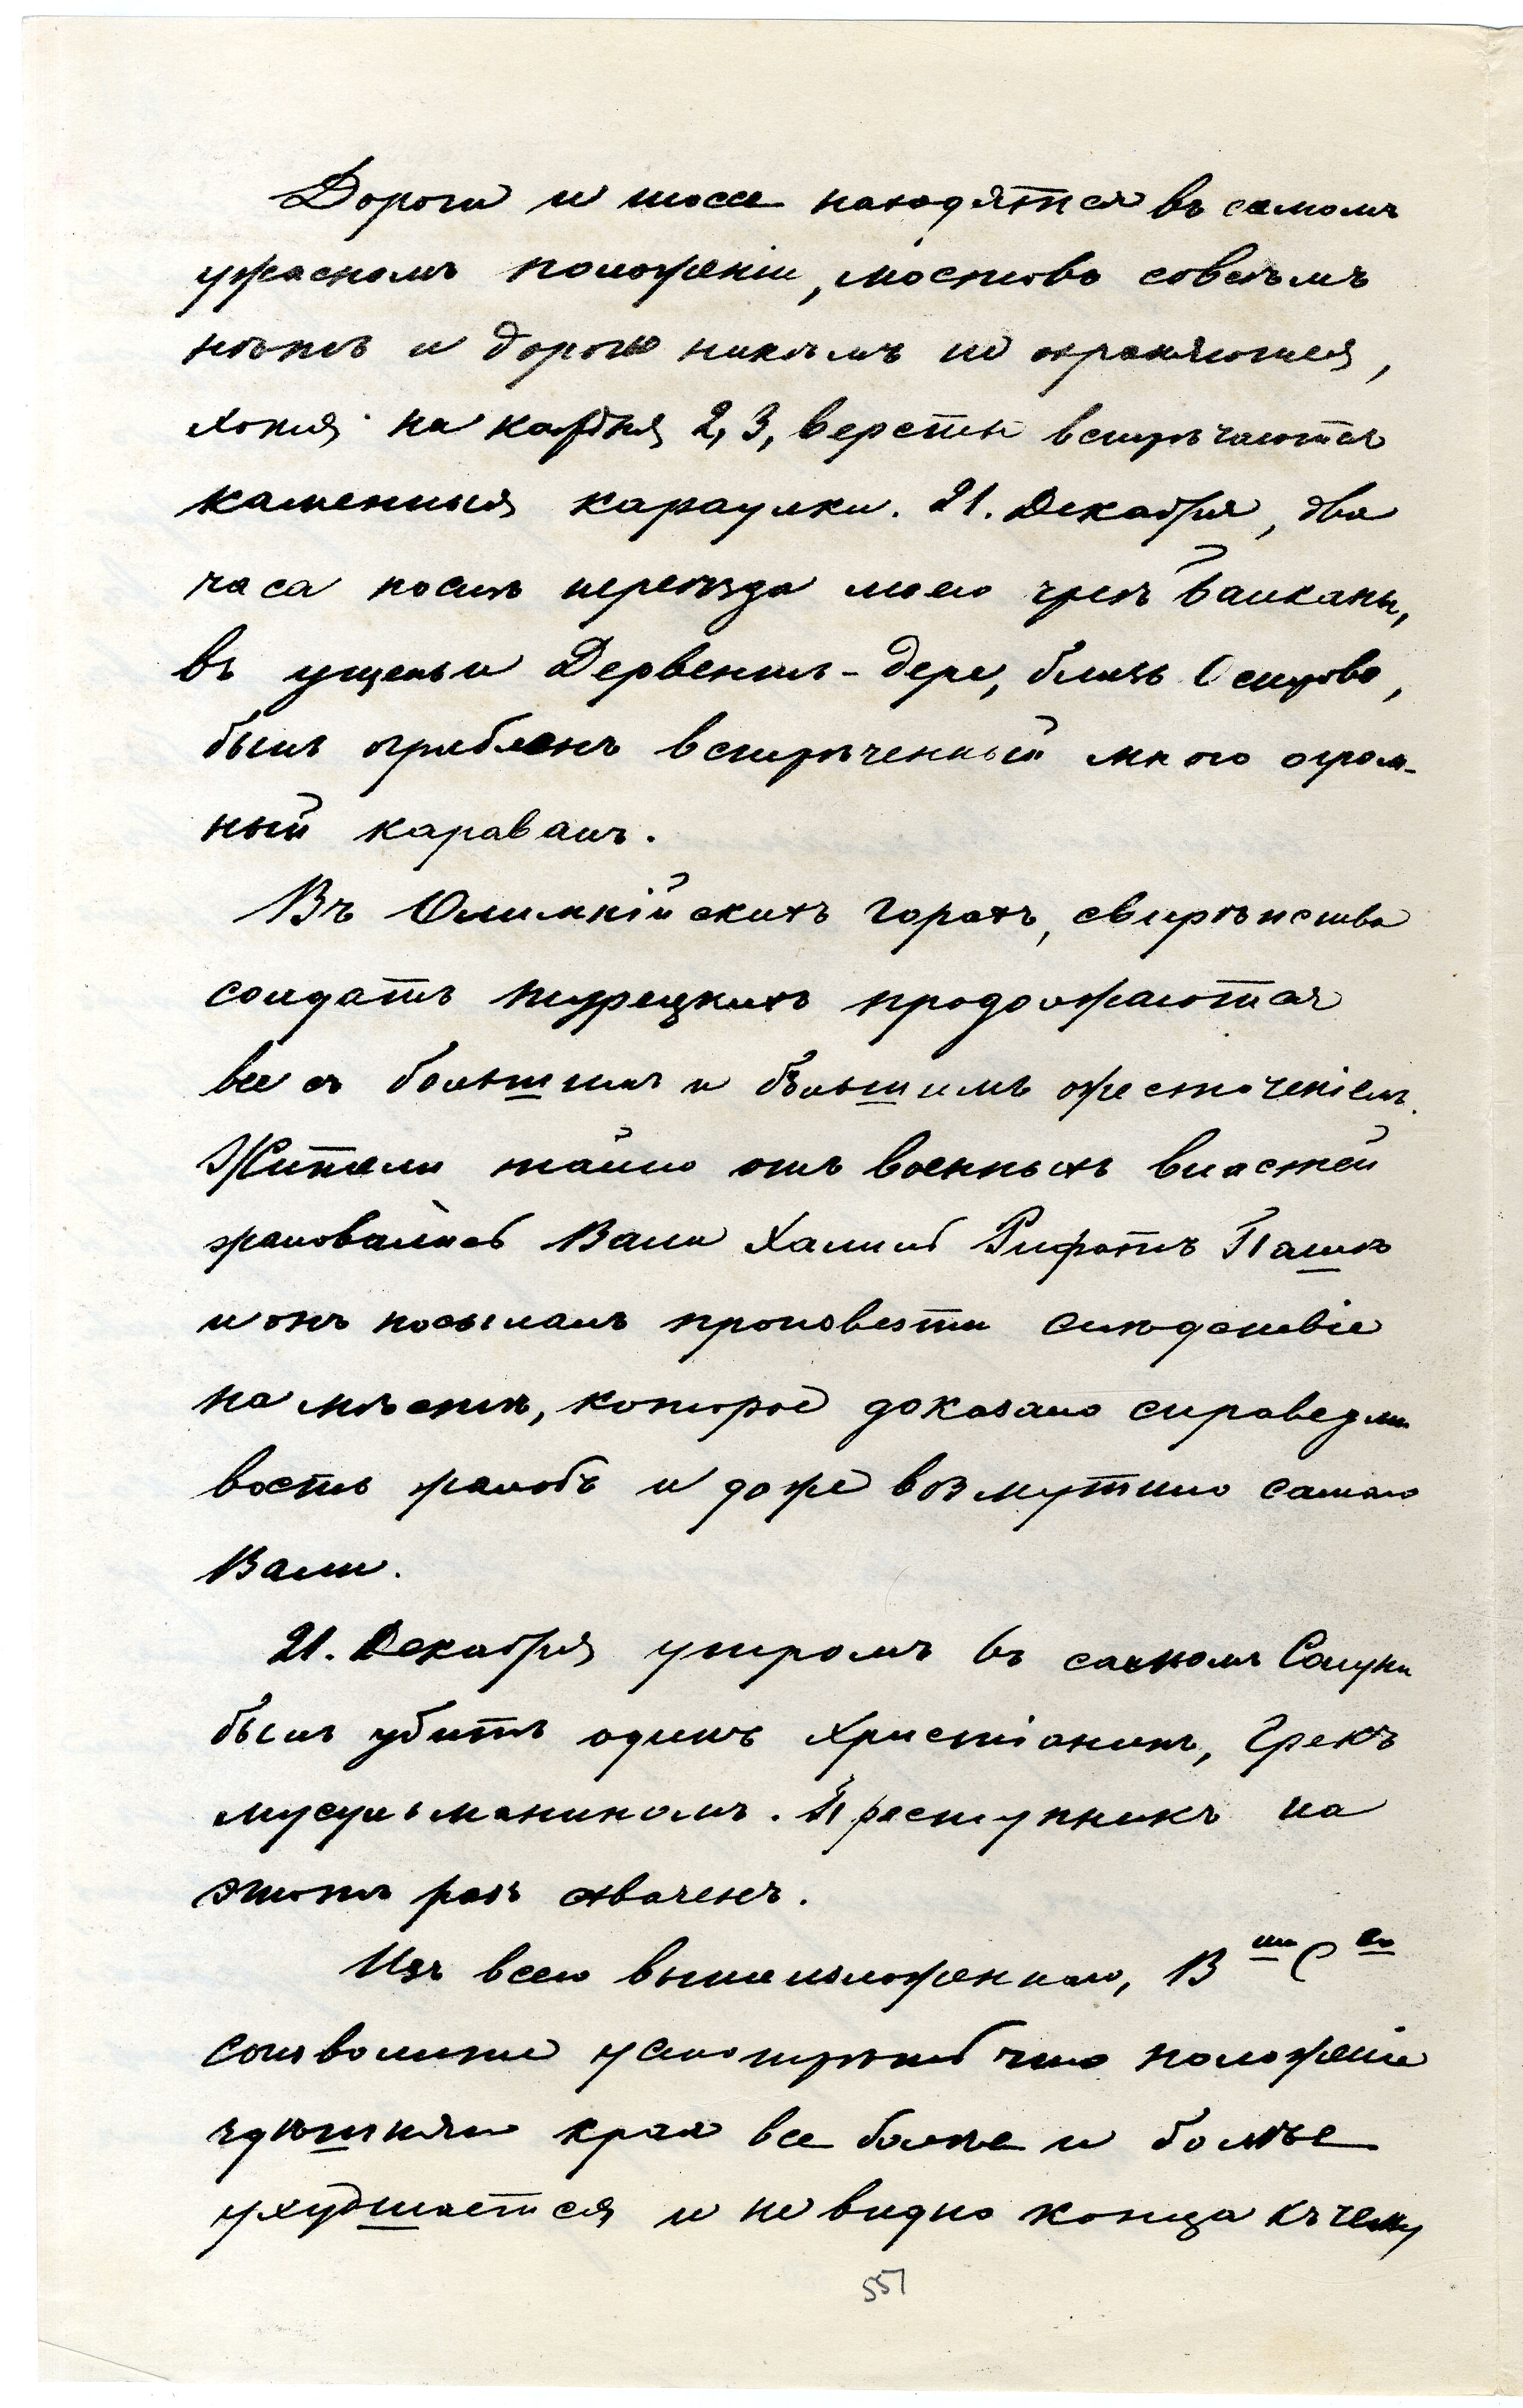 Дороги и шоссе находятся въ самомъ
ужасномъ положеніи, мостовъ совсѣмъ
нѣтъ и дороги никѣмъ не охраняются,
хотя на каждыя 2, 3, версты встрѣчаются
каменныя караулки. 21. Декабря, два
часа послѣ переѣзда моего чрезъ Балканы,
въ ущельи Дервентъ-дере, близь Острово,
былъ ограбленъ встрѣченный мною огром-
ный караванъ.
Въ Олимпійскихъ горахъ, свирѣпства
солдатъ турецкихъ продолжаются
все съ большимъ и большимъ ожесточеніемъ.
Жители тайно отъ военныхъ властей
жаловались Вали Халилъ Рифатъ Пашѣ
и онъ посылалъ произвести слѣдствіе
на мѣстѣ, которое доказало справедли
вость жалобъ и даже возмутило самаго
Вали.
21. Декабря утромъ въ самомъ Солуни
былъ убитъ одинъ Христіанинъ, Грекъ
мусульманиномъ. Преступникъ на
этотъ разъ схваченъ.
Изъ всего вышеизложеннаго, В ше С во
соизволите усмотрѣть что положеніе
здѣшняго края все болѣе и болѣе
ухудшается и не видно конца къ чему
557